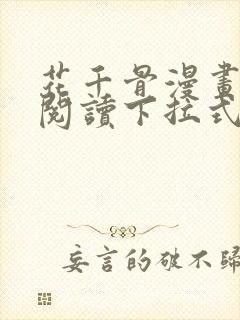 花千骨漫畫
閱讀下拉式
妄言的破不歸